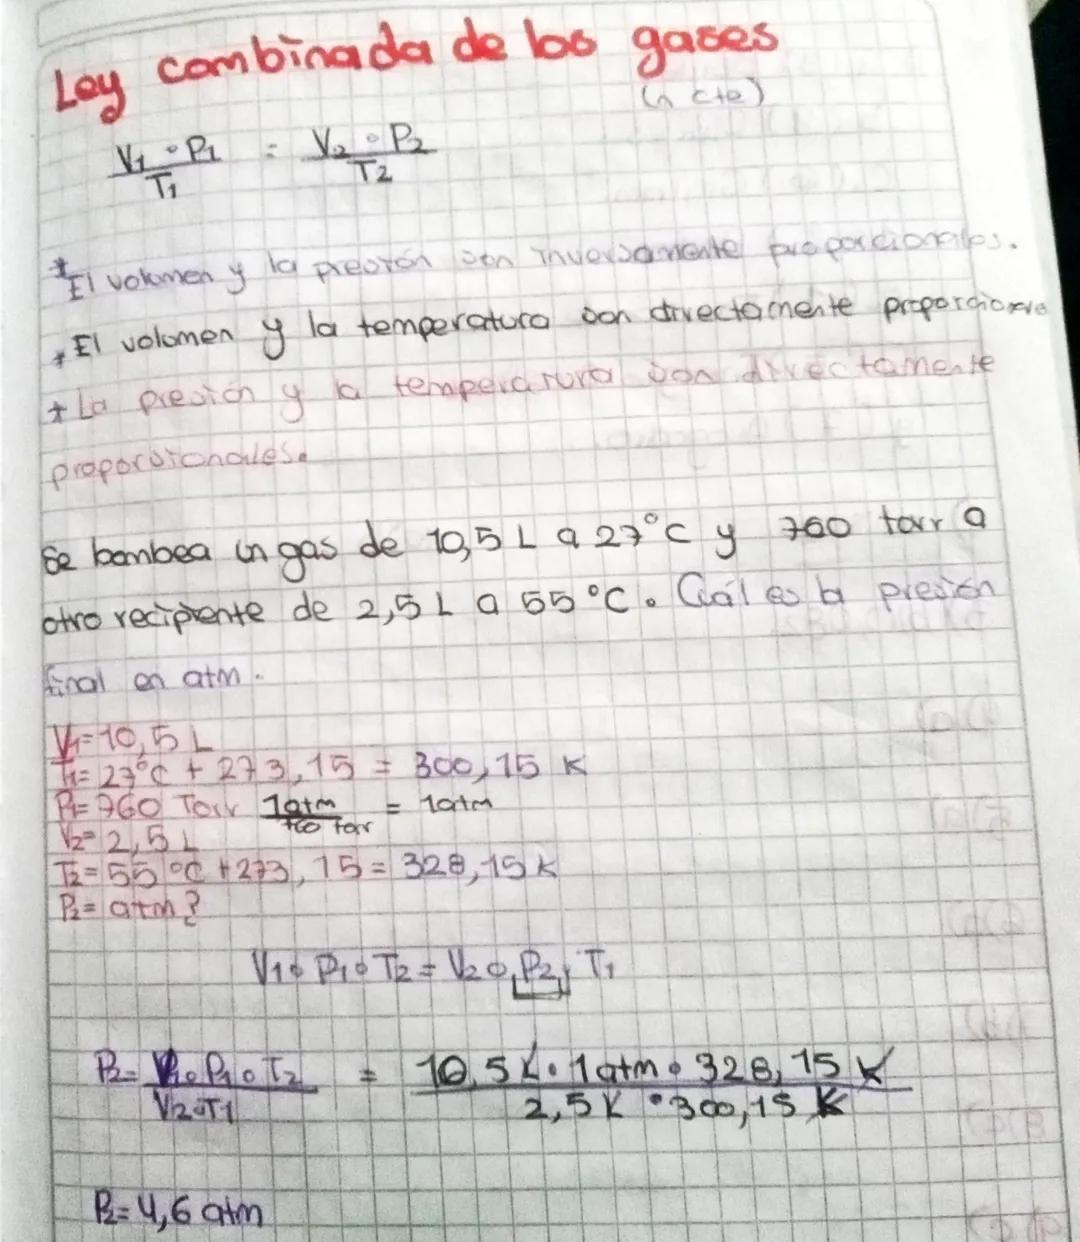 Ley combinada de los gases
(n cte)
V1 · P1 / T1 = V2 · P2 / T2
* El volumen y la presión son inversamente proporcionales.
* El volumen y la temperatura son directamente proporciona
* La presión y la temperatura son directamente
proporcionales.
Se bombea un gas de 10,5 L a 27°C y 760 torr a
otro recipiente de 2,5 L a 55°C. Cuál es la presión
final en atm.
V1= 10,5 L
T1= 27°C + 273,15 = 300,15 K
P1= 760 Torr 1atm / 760 torr = 1atm
V2= 2,5 L
T2= 55 °C + 273,15 = 328,15 K
P2= atm?
V1 · P1 · T2 = V2 · P2 · T1
P2= V1 · P1 · T2 / V2 · T1 = 10,5 L · 1atm · 328,15 K / 2,5 L · 300,15 K
P2= 4,6 atm